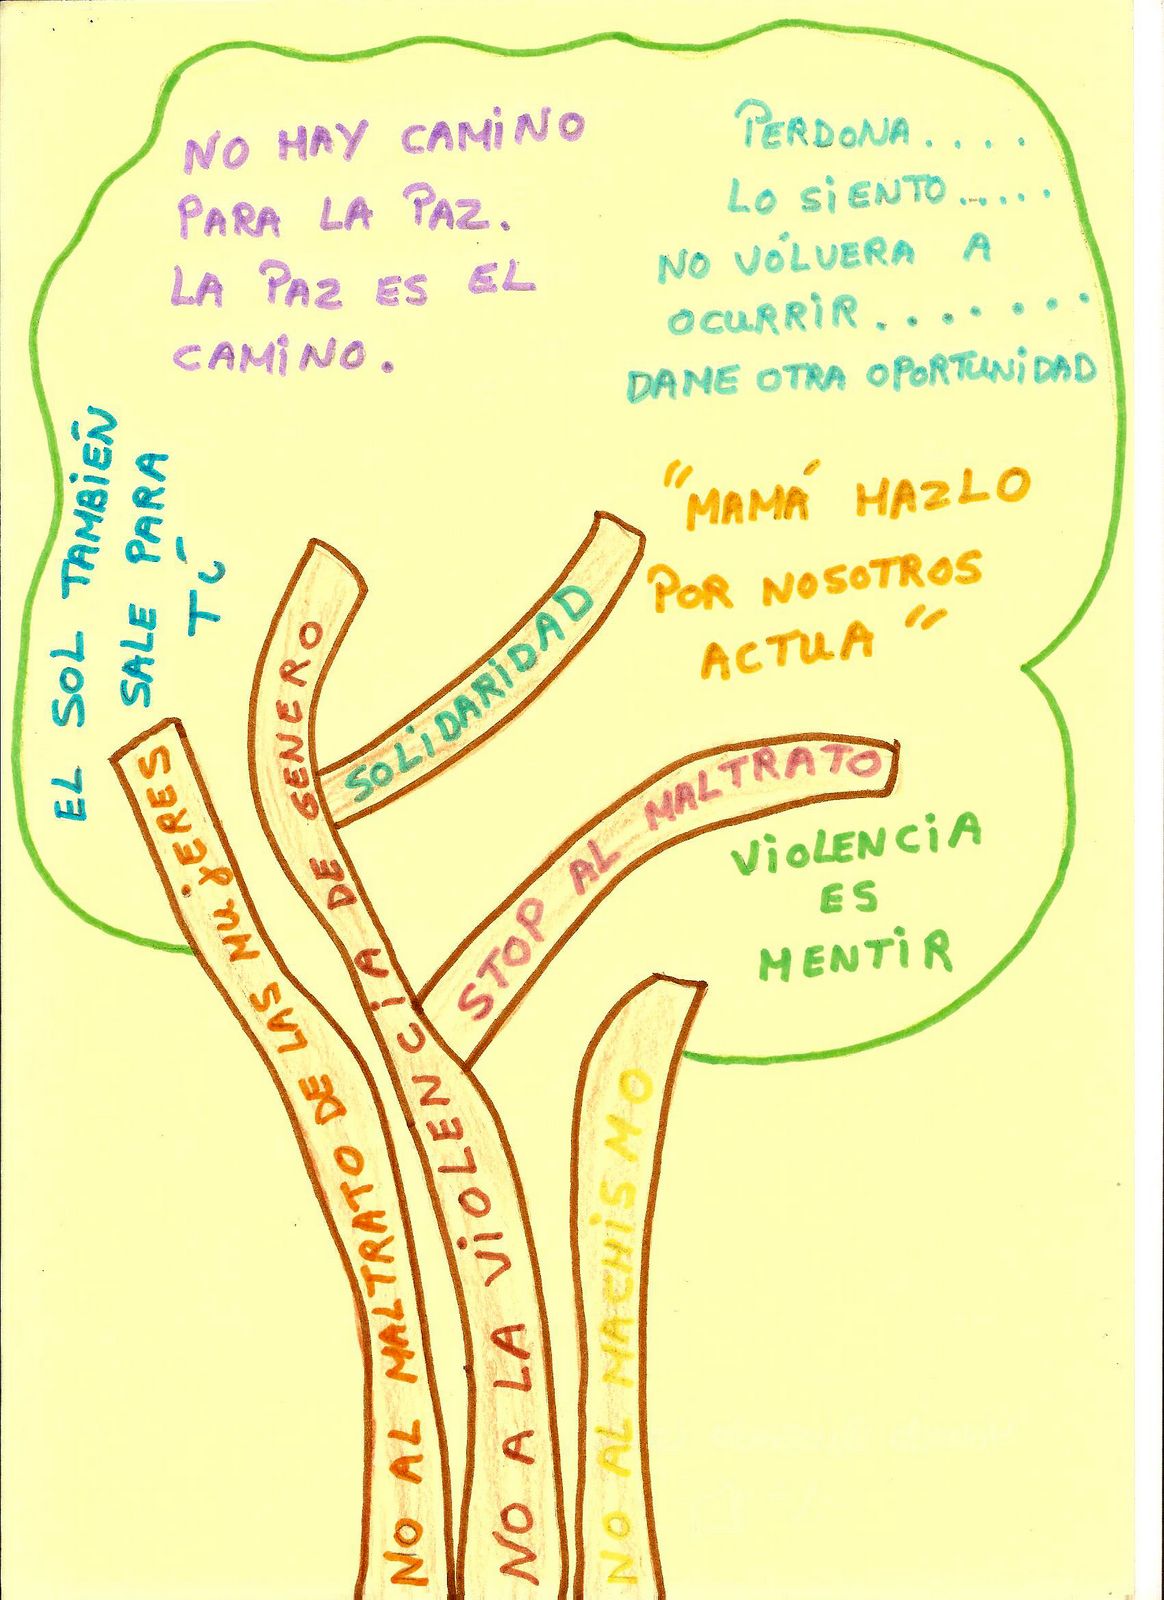 NO HAY CAMINO
PARA LA PAZ.
LA PAZ ES EL
CAMINO.
PERDONA....
LO SIENTO.....
NO VÓLVERA A
OCURRIR.......
DAME OTRA OPORTUNIDAD
EL SOL TAMBIEÑ
SALE PARA
TÚ
"MAMÁ HAZLO
POR NOSOTROS
ACTUA"
VIOLENCIA
ES
MENTIR
NO AL MALTRATO DE LAS MUJERES
NO A LA VIOLENCIA DE GENERO
SOLIDARIDAD
STOP AL MALTRATO
NO AL MACHISMO